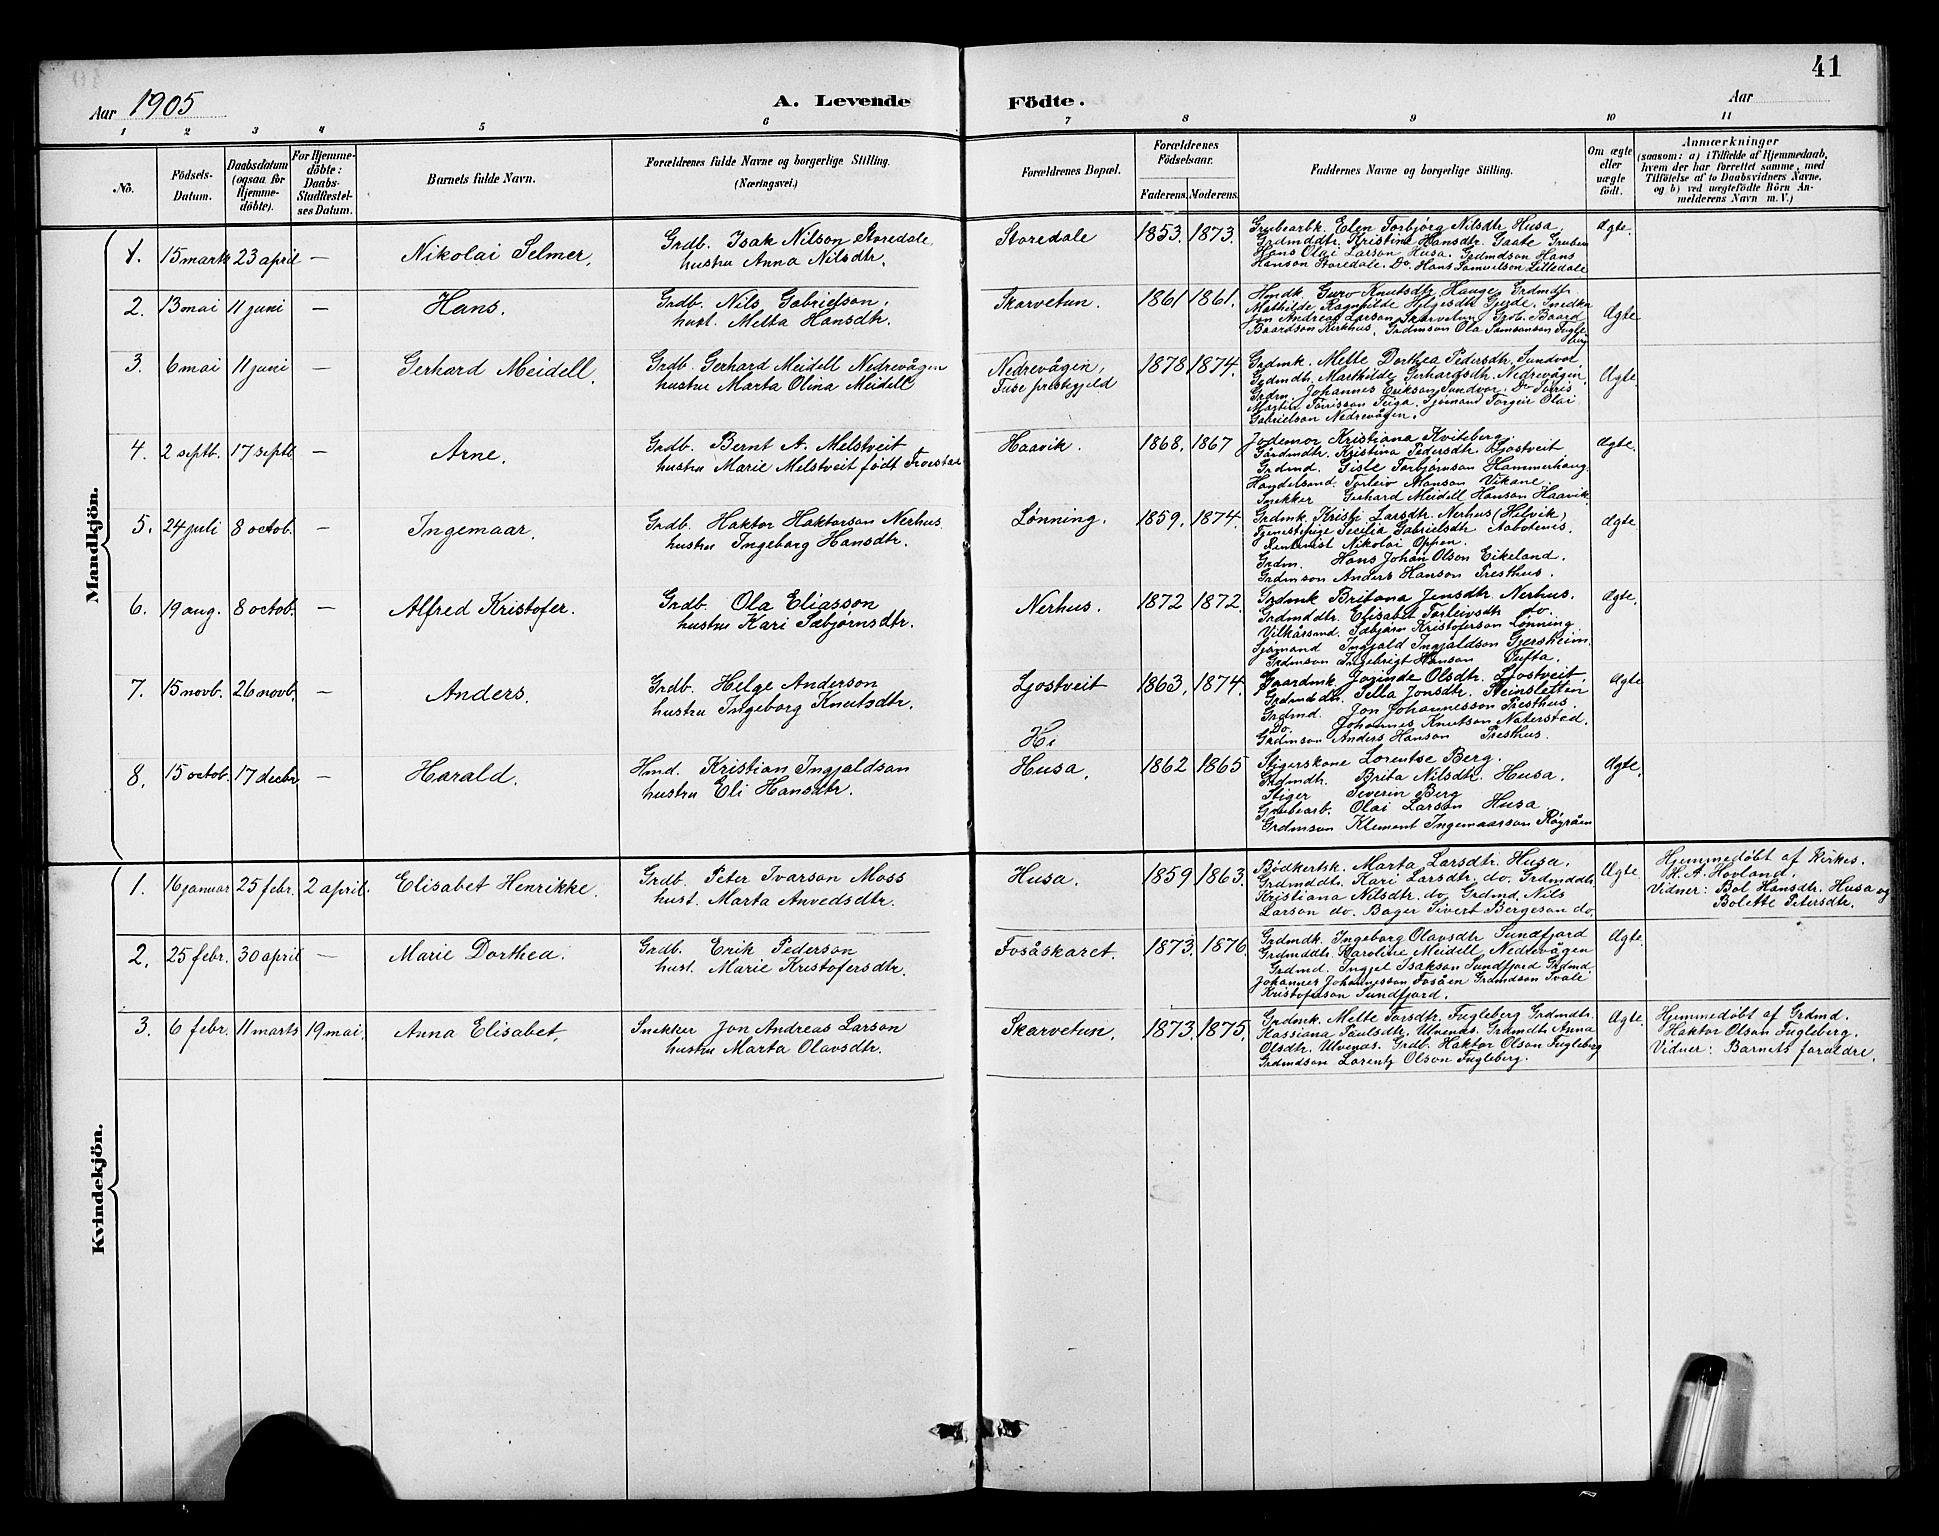 Aar 1905
A. Levende
Födte.
Aar
41
1 2 3 4 5 6 7 8 9 10 11
No.
Födsels-
Datum.
Daabsdatum
(ogsaa for
Hjemme-
döbte).
For Hjemme-
döbte:
Daabs-
Stadfæstel-
ses Datum.
Barnets fulde Navn.
Forældrenes fulde Navne og borgerlige Stilling.
(Næringsvei.)
Forældrenes Bopæl.
Forældrenes
Födselsaar.
Faderens. Moderens.
Faddernes Navne og borgerlige Stilling.
Om ægte
eller
uægte
födt.
Anmærkninger
(saasom: a) i Tilfælde af Hjemmedaab,
hvem der har forrettet samme, med
Tilföielse af to Daabsvidners Navne,
og b) ved uægtefödte Börn An-
melderens Navn m. V.)
Mandkjön.
1. 15 marts 23 april — Nikolai Selmer.
Grdb. Isak Nilson Storedale,
hustru Anna Nilsdtr.
Storedale 1853. 1873.
Grubearbk. Elen Torbjørg Nilsdtr Husa
Grdmddtr. Kristine Hansdtr. Gaate
Hans Olai Larson Husa. Grdmdson Hans
Hanson Storedale. Do. Hans Samuelson Lilledale
Ægte.
2. 13 mai 11 juni — Hans.
Grdb. Nils Gabrielson,
hust. Metta Hansdtr.
Skarvetun. 1861 1861.
Hmdk. Guro Knutsdtr Hauge. Grdmdt.
Mathilde Ragnhilde Helgesdtr Gjerde. Snedker
Jon Andreas Larson Skarvetun. Grb. Baard
Baardson Kirkhus, Grdmson Ola Samsonson Fugle-
berg
Ægte
3. 6 mai 11 juni — Gerhard Meidell.
Grdb. Gerhard Meidell Nedrevågen
hustru Marta Olina Meidell
Nedrevågen,
Fuse prestegjeld
1878. 1874.
Grdmk. Mette Dorthea Pedersdtr. Sundvor
Grdmdtr. Marthilde Gerhardsdtr. Nedrevågen.
Grdm. Johannes Erikson Sundvor. Do Toris
Martin Torrisson Teiga. Sjømand Torgeir Olai
Gabrielson Nedrevågen.
Ægte
4. 2 septb. 17 septb — Arne.
Grdb. Bernt A. Melstveit
hustru Marie Melstveit født
Haavik. 1868. 1867
Jodemor Kristiana Kviteberg.
Gårdmdtr. Kristina Pedersdtr. Ljostveit
Grdmd. Gisle Torbjørnson Hammerhaug.
Handelsmd. Torleiv Monson Vikane.
Snekker Gerhard Meidell Hanson Haavik
Ægte.
5. 24 juli 8 octob. — Ingemaar.
Grdb. Haktor Haktorson Nerhus
hustru Ingeborg Hansdtr.
Lønning. 1859. 1874.
Grdmk. Kristi Larsdtr. Nerhus (Helvik)
Tjenestepige Secilia Gabrielsdtr Aabotenes.
Nikolai Oppen.
Grdm. Hans Johan Olson Eikeland.
Grdmson Anders Hanson Presthus.
Ægte
6. 19 aug. 8 octob. — Alfred Kristofer.
Grdb. Ola Eliasson
hustru Kari Sæbjørnsdtr.
Nerhus. 1872 1872.
Grdmk Britana Jensdtr. Nerhus.
Grdmddtr. Elisabet Torleivsdtr do.
Vilkårsmd. Sæbjørn Kristoferson Lønning
Sjømand Ingjald Ingjaldson Gjersheim.
Grdmson Ingebrigt Hanson Tufta.
Ægte.
7. 15 novb. 26 novb. — Anders.
Grdb. Helge Anderson
hustru Ingeborg Knutsdtr.
Ljostveit 1863. 1874.
Gaardmk. Jorinde Olsdtr. Ljostveit.
Grdmddtr. Sella Jonsdtr. Steinsletten
Grdmd. Jon Johannesson Presthus.
Do. Johannes Knutson Naterstad.
Grdmson Anders Hanson Presthus.
Ægte
8. 15 octob. 17 decbr — Harald.
Hmd. Kristian Ingjaldson
hustru Eli Hansdtr.
Hi
Husa. 1862 1865
Stigerskone Lorentse Berg.
Grdmdtr. Brita Nilsdtr. Husa.
Stiger Severin Berg
Grubearb. Olai Larson Husa.
Grdmson Klement Ingemaarson Røyråen
Ægte.
Kvindekjön.
1. 16 januar 25 febr. 2 april. Elisabet Henrikke.
Grdb. Peter Ivarson Moss
hust. Marta Anvedsdtr.
Husa. 1859 1863.
Bødkertsk. Marta Larsdtr. Husa.
Grdmddtr. Kari Larsdtr. do. Grdmddtr
Kristiana Nilsdtr. do. Grdmd. Nils
Larson do. Bager Sivert Bergeson do.
Ægte
Hjemmedøbt af Kirkes.
H. A. Hovland.
Vidner: Bol Hansdtr. Husa og
Bolette Petersdtr.
2. 25 febr. 30 april — Marie Dorthea.
Grdb. Erik Pederson
hust. Marie Kristofersdtr.
Fosåskaret. 1873. 1876.
Grdmdk. Ingeborg Olavsdtr Sundfjord
Grdmddtr. Karoline Meidell Nedrevågen
Grdmd. Ingjel Isakson Sundfjord Grdmd.
Johannes Johannesson Fosåen Grdmdson Tvale
Kristoferson Sundfjord.
Ægte.
3. 6 febr. 11 marts 19 mai. Anna Elisabet,
Snekker Jon Andreas Larson
hustru Marta Olavsdtr.
Skarvetun. 1873. 1875.
Grdmk. Mette Torsdtr. Fugleberg Grdmdtr.
Kassiana Paulsdtr. Ulvenes. Grdmdtr Anna
Olsdtr. Ulvenes. Grdb. Haktor Olson Fugleberg
Grdmdson Lorentz Olson Fugleberg.
Ægte.
Hjemmedøbt af Grdmd.
Haktor Olson Fugleberg.
Vidner: Barnets forældre.